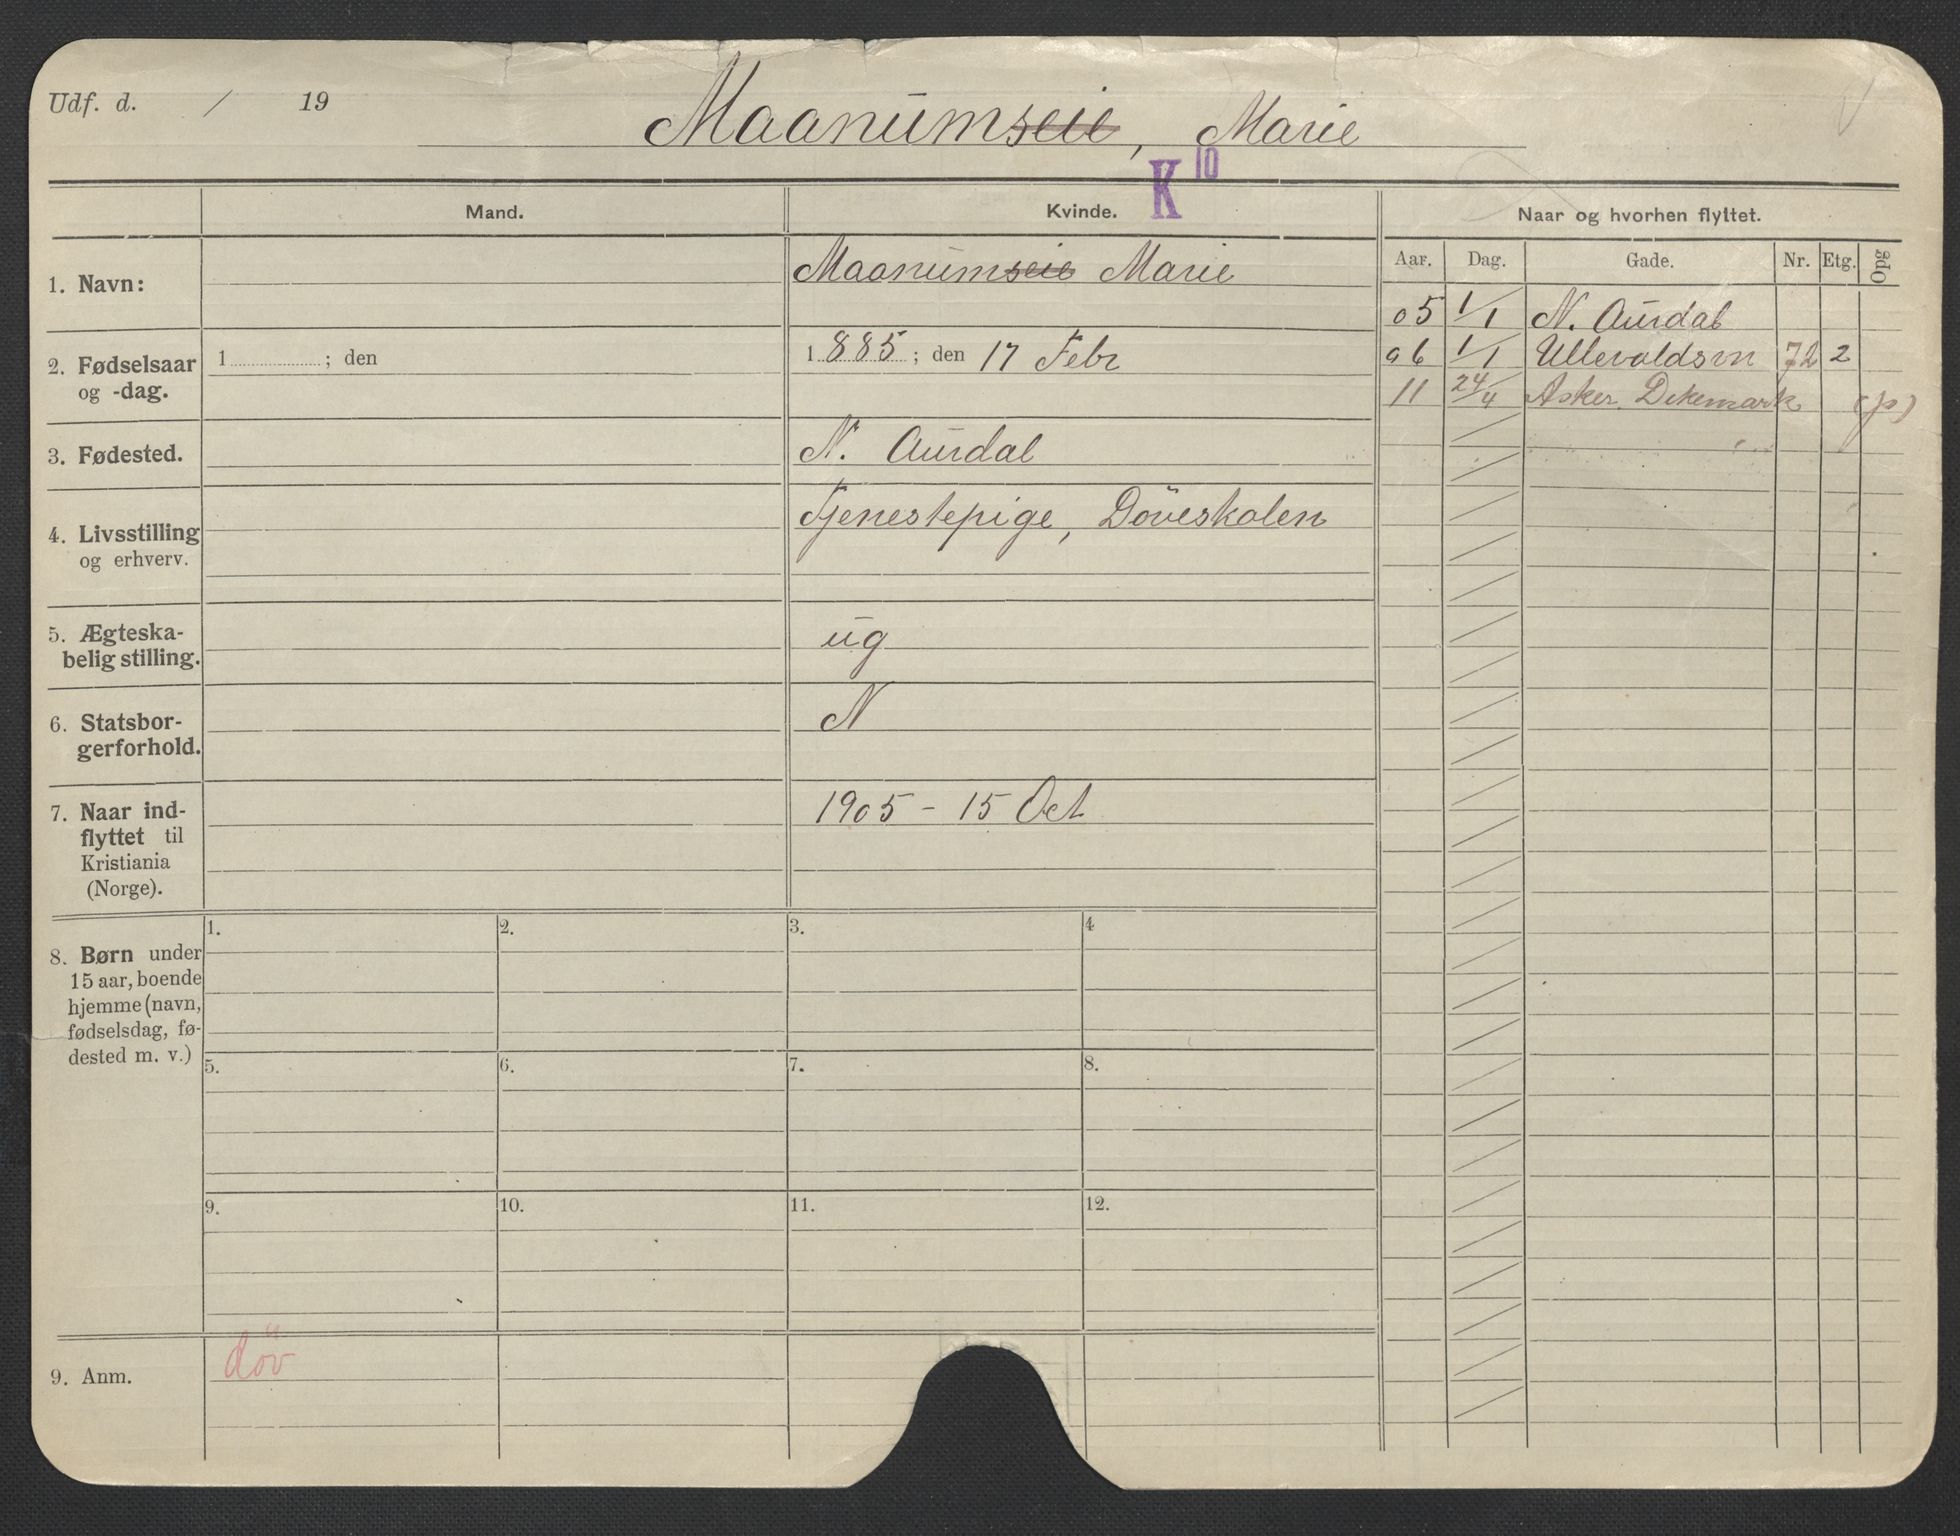 Udf. d. / 19
Maanumseie, Marie
K 10
Mand.
Kvinde.
Naar og hvorhen flyttet.
Aar. Dag. Gade. Nr. Etg. Opg
1. Navn:
Maanumseie Marie
05 1/1 N. Aurdal
06 1/1 Ullevoldsvn 72 2
11 24/4 Asker. Dikemark (ps)
2. Fødselsaar
og -dag.
1 ; den
1885 ; den 17 Febr
3. Fødested.
N. Aurdal
4. Livsstilling
og erhverv.
Tjenestepige, Döveskolen
5. Ægteska-
belig stilling.
ug
6. Statsbor-
gerforhold.
N
7. Naar ind-
flyttet til
Kristiania
(Norge).
1905 - 15 Oct
8. Børn under
15 aar, boende
hjemme (navn,
fødselsdag, fø-
dested m. v.)
1. 2. 3. 4
5. 6. 7. 8.
9. 10. 11. 12.
9. Anm.
döv